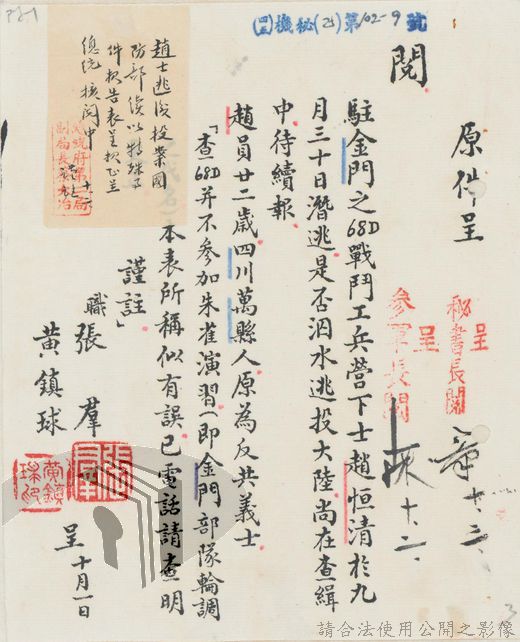 四機秘(乙)第102-9號
閱
原件呈
呈
秘書長閱
呈
參軍長閱
十、二、
十、二、
駐金門之68D戰鬥工兵營下士趙恒清於九
月三十日潛逃是否泅水逃投大陸尚在查緝
中待續報
趙員廿二歲四川萬縣人原為反共義士
「查68D并不參加朱雀演習(即金門部隊輪調
之代名)本表所稱似有誤已電話請查明
謹註」
職張 羣
黃鎮球
呈 十月一日
趙士逃後投業國
防部
件報告表呈
總統 核閱中
副局長
3
請合法使用公開之影像